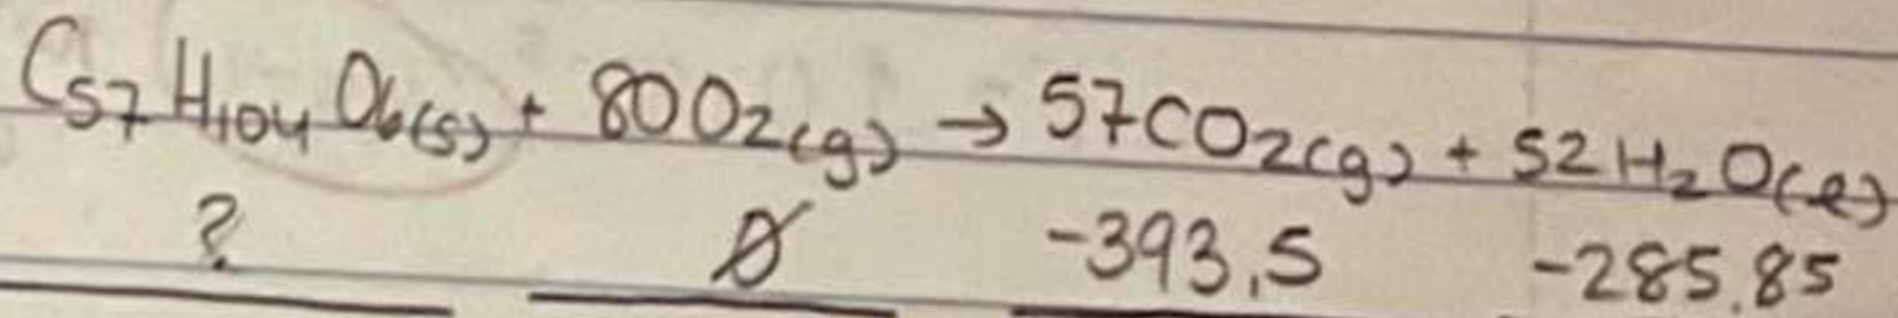 C57H104O6(s) + 80O2(g) → 57CO2(g) + 52H2O(l)
? 0 -393,5 -285.85